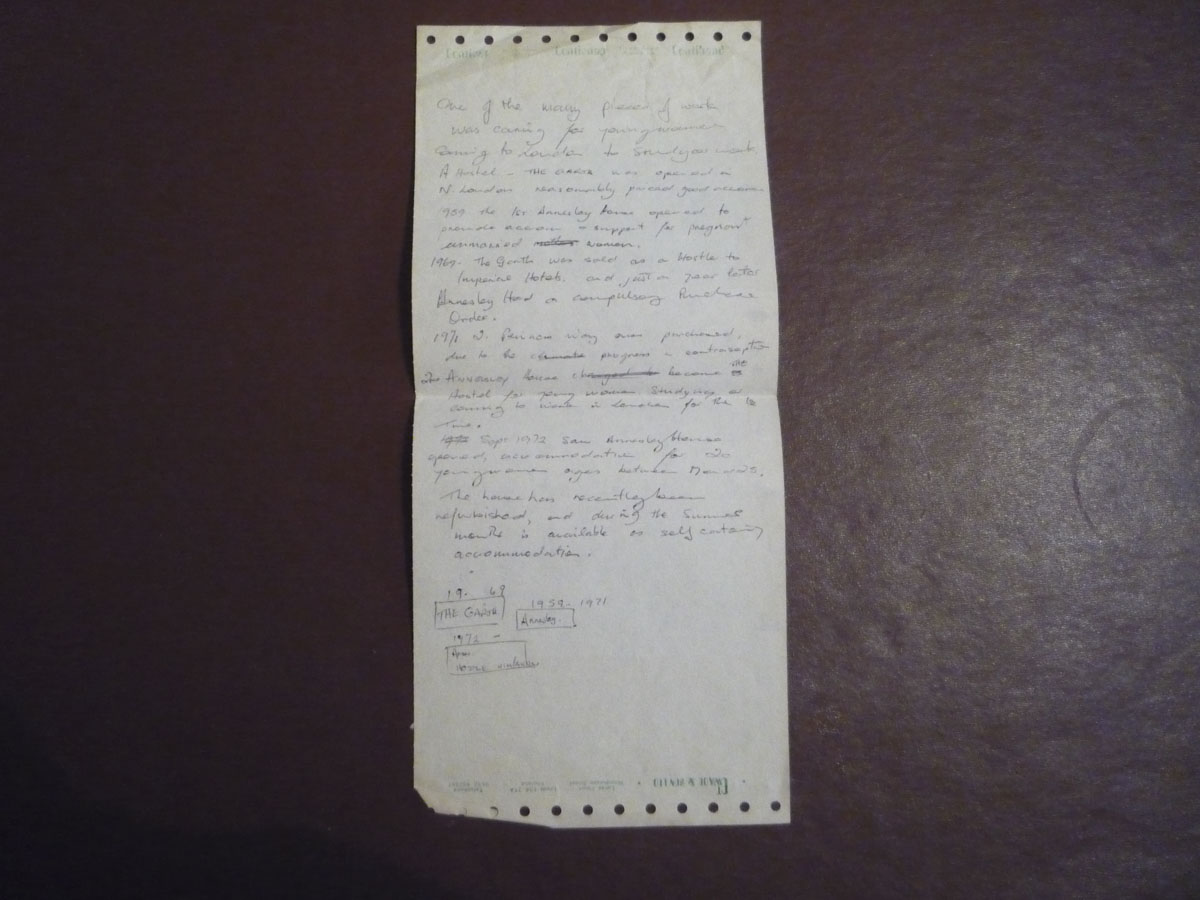 One of the many pieces of work
was caring for young women
coming to London to study or work
A Hostel - THE GARTH was opened in
N. London reasonably priced good accom
the 1st Annesley House opened to
provide accom - support for pregnant
unmarried women.
1969. The Garth was sold as a Hostle to
Imperial Hotels. and just a year later
Annesley Had a compulsory Purchase
Order.
1971 2. Princes Way was purchased,
due to the progress in contraception
Annesley house became
Hostel for young women studying or
coming to work in London for the 1st
Time.
Sept 1972 saw Annesley House
opened, accommodation for 20
young women ages between
The house has recently been
refurbished, and during the Summer
months is available as self catering
accommodation.
19. 69
THE GARTH
1959 - 1971
Annesley.
1972 -